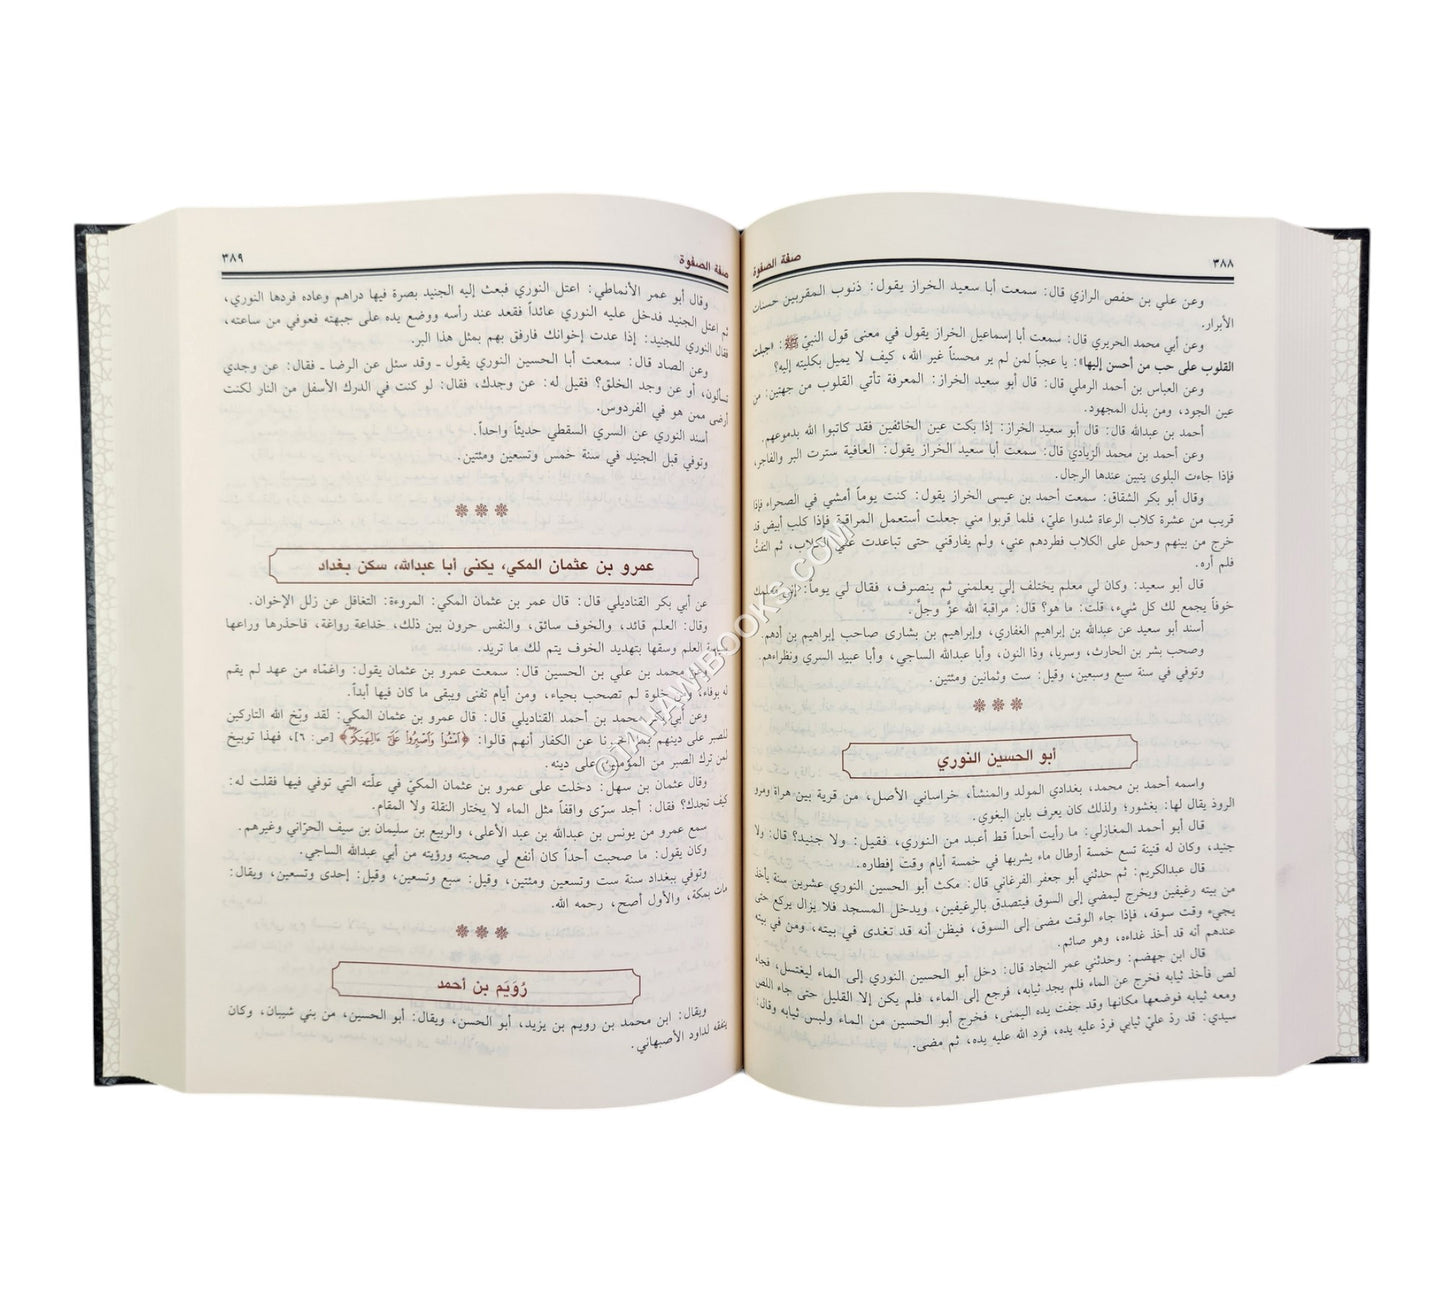 ٣٨٨
صفة الصفوة
وعن علي بن حفص الرازي قال: سمعت أبا سعيد الخراز يقول: ذنوب المقربين حسنات
الأبرار.
وعن أبي محمد الحريري قال: سمعت أبا إسماعيل الخراز يقول في معنى قول النبيّ ﷺ: «جبلت
القلوب على حب من أحسن إليها»: يا عجباً لمن لم ير محسناً غير الله، كيف لا يميل بكليته إليه؟
وعن العباس بن أحمد الرملي قال: قال أبو سعيد الخراز: المعرفة تأتي القلوب من جهتين: من
عين الجود، ومن بذل المجهود.
أحمد بن عبدالله قال: قال أبو سعيد الخراز: إذا بكت عين الخائفين فقد كاتبوا الله بدموعهم.
وعن أحمد بن محمد الزيادي قال: سمعت أبا سعيد الخراز يقول: العافية سترت البر والفاجر،
فإذا جاءت البلوى يتبين عندها الرجال.
وقال أبو بكر الشقاق: سمعت أحمد بن عيسى الخراز يقول: كنت يوماً أمشي في الصحراء فإذا
قريب من عشرة كلاب الرعاة شدوا عليّ، فلما قربوا مني جعلت أستعمل المراقبة فإذا كلب أبيض قد
خرج من بينهم وحمل على الكلاب فطردهم عني، ولم يفارقني حتى تباعدت عني الكلاب، ثم التفتُّ
فلم أره.
قال أبو سعيد: وكان لي معلم يختلف إلي يعلمني ثم ينصرف، فقال لي يوماً: إني معلمك
خوفاً يجمع لك كل شيء، قلت: ما هو؟ قال: مراقبة الله عزَّ وجلَّ.
أسند أبو سعيد عن عبدالله بن إبراهيم الغفاري، وإبراهيم بن بشارى صاحب إبراهيم بن أدهم.
وصحب بشر بن الحارث، وسريا، وذا النون، وأبا عبدالله الساجي، وأبا عبيد السري ونظراءهم.
وتوفي في سنة سبع وسبعين، وقيل: ست وثمانين ومئتين.
أبو الحسين النوري
واسمه أحمد بن محمد، بغدادي المولد والمنشأ، خراساني الأصل، من قرية بين هراة ومرو
الروذ يقال لها: بغشور؛ ولذلك كان يعرف بابن البغوي.
قال أبو أحمد المغازلي: ما رأيت أحداً قط أعبد من النوري، فقيل: ولا جنيد؟ قال: ولا
جنيد، وكان له قنينة تسع خمسة أرطال ماء يشربها في خمسة أيام وقت إفطاره.
قال عبدالكريم: ثم حدثني أبو جعفر الفرغاني قال: مكث أبو الحسين النوري عشرين سنة يأخذ
من بيته رغيفين ويخرج ليمضي إلى السوق فيتصدق بالرغيفين، ويدخل المسجد فلا يزال يركع حتى
يجيء وقت سوقه، فإذا جاء الوقت مضى إلى السوق، فيظن أنه قد تغدى في بيته، ومن في بيته
عندهم أنه قد أخذ غداءه، وهو صائم.
قال ابن جهضم: وحدثني عمر النجاد قال: دخل أبو الحسين النوري إلى الماء ليغتسل، فجاء
لص فأخذ ثيابه فخرج عن الماء فلم يجد ثيابه، فرجع إلى الماء، فلم يكن إلا القليل حتى جاء اللص
ومعه ثيابه فوضعها مكانها وقد جفت يده اليمنى، فخرج أبو الحسين من الماء ولبس ثيابه وقال:
سيدي: قد ردّ عليّ ثيابي فردّ عليه يده، فرد الله عليه يده، ثم مضى.
صفة الصفوة
٣٨٩
وقال أبو عمر الأنماطي: اعتل النوري فبعث إليه الجنيد بصرة فيها دراهم وعاده فردها النوري،
ثم اعتل الجنيد فدخل عليه النوري عائداً فقعد عند رأسه ووضع يده على جبهته فعوفي من ساعته،
فقال النوري للجنيد: إذا عدت إخوانك فارفق بهم بمثل هذا البر.
وعن الصاد قال: سمعت أبا الحسين النوري يقول ـ وقد سئل عن الرضا ـ فقال: عن وجدي
تسألون، أو عن وجد الخلق؟ فقيل له: عن وجدك، فقال: لو كنت في الدرك الأسفل من النار لكنت
أرضى ممن هو في الفردوس.
أسند النوري عن السري السقطي حديثاً واحداً.
وتوفي قبل الجنيد في سنة خمس وتسعين ومئتين.
عمرو بن عثمان المكي، يكنى أبا عبدالله، سكن بغداد
عن أبي بكر القناديلي قال: قال عمر بن عثمان المكي: المروءة: التغافل عن زلل الإخوان.
وقال: العلم قائد، والخوف سائق، والنفس حرون بين ذلك، خداعة رواغة، فاحذرها وراعها
العلم وسقها بتهديد الخوف يتم لك ما تريد.
محمد بن علي بن الحسين قال: سمعت عمرو بن عثمان يقول: واغمّاه من عهد لم يقم
له بوفاء، ومن خلوة لم تصحب بحياء، ومن أيام تفنى ويبقى ما كان فيها أبداً.
وعن أبي محمد بن أحمد القناديلي قال: قال عمرو بن عثمان المكي: لقد وبّخ الله التاركين
للصبر على دينهم بما أخبرنا عن الكفار أنهم قالوا: ﴿آمْشُوا۟ وَٱصْبِرُوا۟ عَلَىٰٓ ءَالِهَتِكُمْ﴾ [ص: ٦]، فهذا توبيخ
لمن ترك الصبر من المؤمنين على دينه.
وقال عثمان بن سهل: دخلت على عمرو بن عثمان المكيّ في علّته التي توفي فيها فقلت له:
كيف تجدك؟ فقال: أجد سرّى واقفاً مثل الماء لا يختار النقلة ولا المقام.
سمع عمرو من يونس بن عبدالله بن عبد الأعلى، والربيع بن سليمان بن سيف الحرّاني وغيرهم.
وكان يقول: ما صحبت أحداً كان أنفع لي صحبته ورؤيته من أبي عبدالله الساجي.
وتوفي ببغداد سنة ست وتسعين ومئتين، وقيل: سبع وتسعين، وقيل: إحدى وتسعين، ويقال:
مات بمكة، والأول أصح، رحمه الله.
رُوَيَم بن أحمد
ويقال: ابن محمد بن رويم بن يزيد، أبو الحسن، ويقال: أبو الحسين، من بني شيبان، وكان
يتفقه لداود الأصبهاني.
©TAHAWIBOOKS.COM